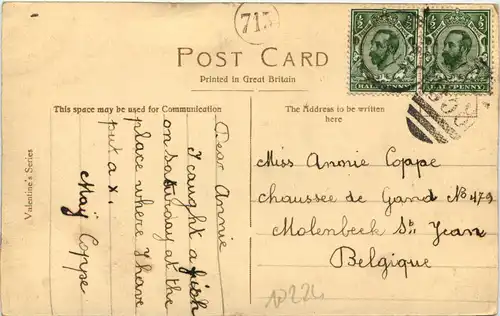 713
POST CARD
Printed in Great Britain
HALF PENNY
HALF PENNY
This space may be used for Communication
The Address to be written
here
Valentine's Series
Dear Annie
I caught a fish
on saturday at the
place where I have
put a x.
Maÿ Coppe
Miss Annie Coppe
chaussee de Gand No 479
Molenbeek St. Jean
Belgique